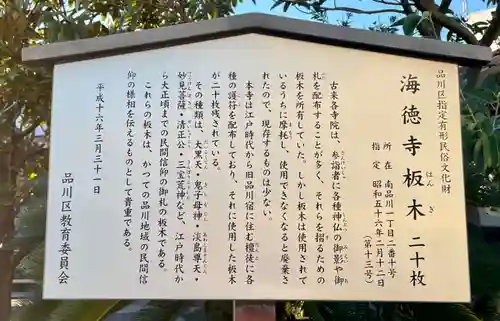 品川区指定有形民俗文化財
海徳寺板木 二十枚
はんぎ
所在 南品川一丁目二番十号
指定 昭和五十六年二月十二日
(第十三号)
古来各寺院は、参詣者に各種神仏の御影や御
札を配布することが多く、それらを摺るための
板木を所有していた。しかし板木は使用されて
いるうちに摩耗し、使用できなくなると廃棄さ
れたので、現存するものは少ない。
本寺は江戸時代から旧品川宿に住む檀徒に各
種の護符を配布しており、それに使用した板木
が二十枚残されている。
その種類は、大黒天・鬼子母神・淡島尊天・
妙見菩薩・清正公・三宝荒神など、江戸時代か
ら大正頃までの民間信仰の御札の板木である。
これらの板木は、かつての品川地域の民間信
仰の様相を伝えるものとして貴重である。
平成十六年三月三十一日
品川区教育委員会